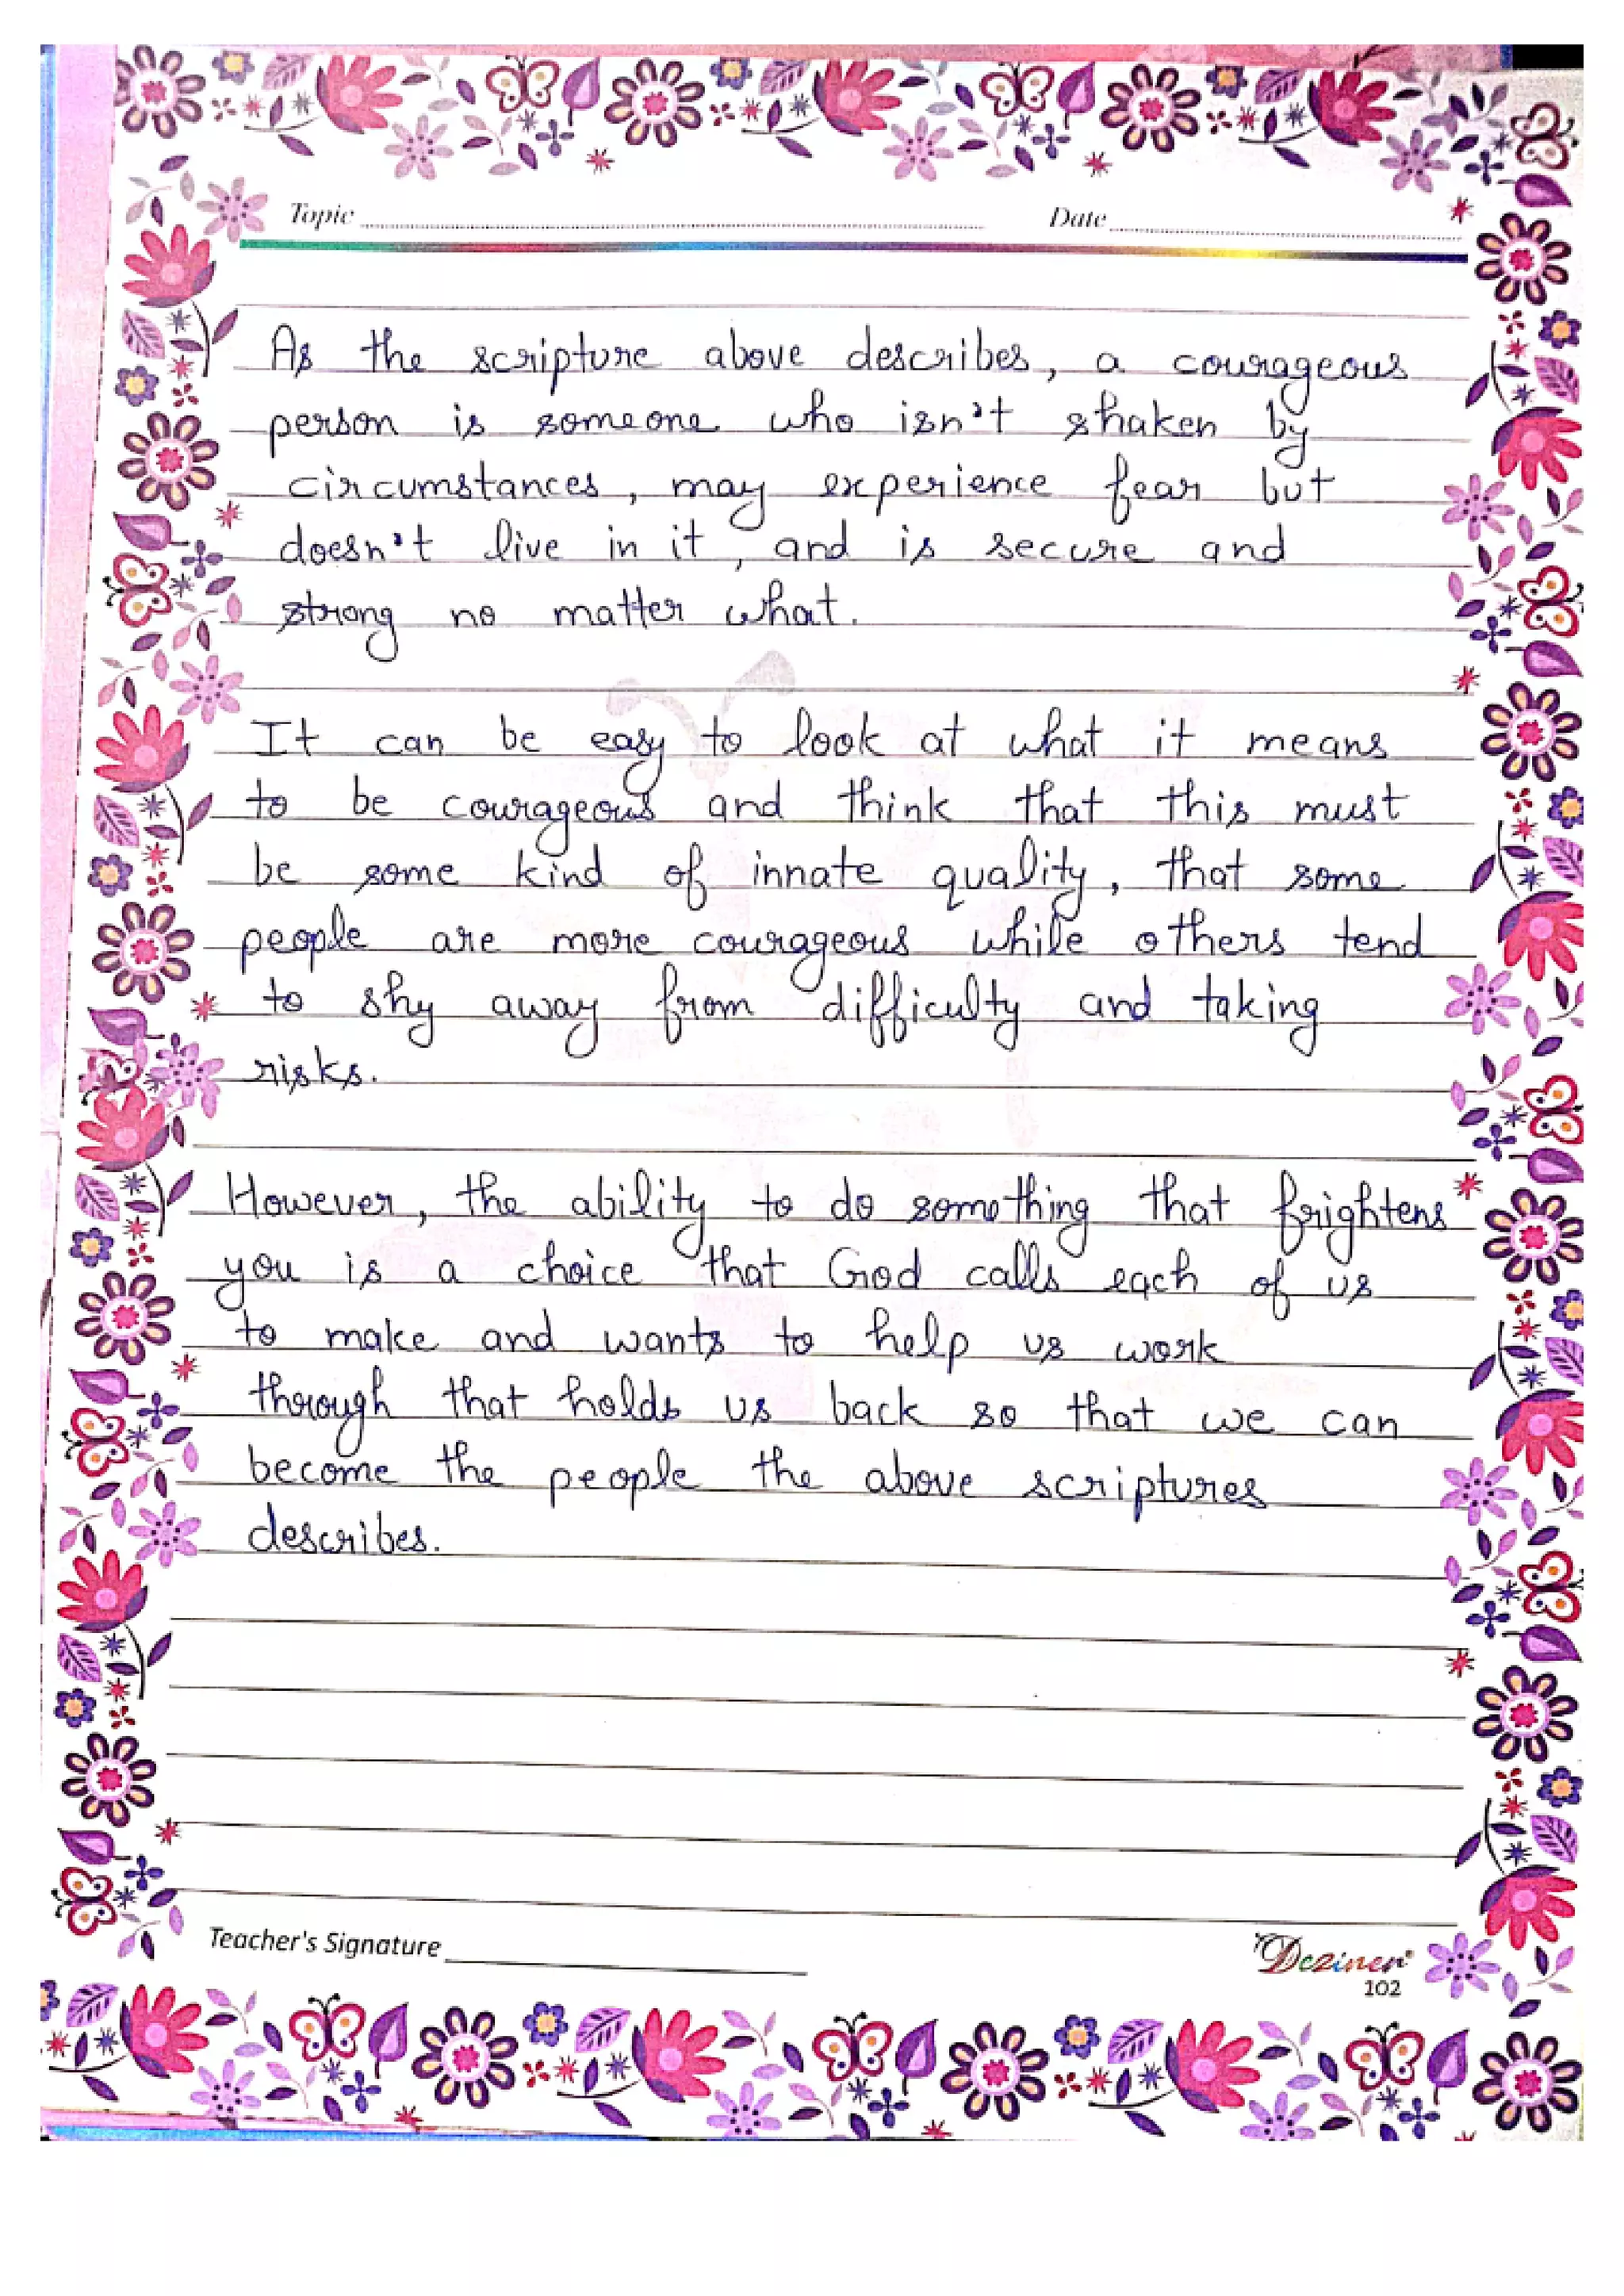 Topic
Date
As the scripture above describes, a courageous
person is someone who isn't shaken by
circumstances, may experience fear but
doesn't live in it, and is secure and
strong no matter what.
It can be easy to look at what it means
to be courageous and think that this must
be some kind of innate quality, that some
people are more courageous while others tend
to shy away from difficulty and taking
risks.
However, the ability to do something that frightens
you is a choice that God calls each of us
to make and wants to help us work
through that holds us back so that we can
become the people the above scriptures
describes.
Teacher's Signature
Deziner
102